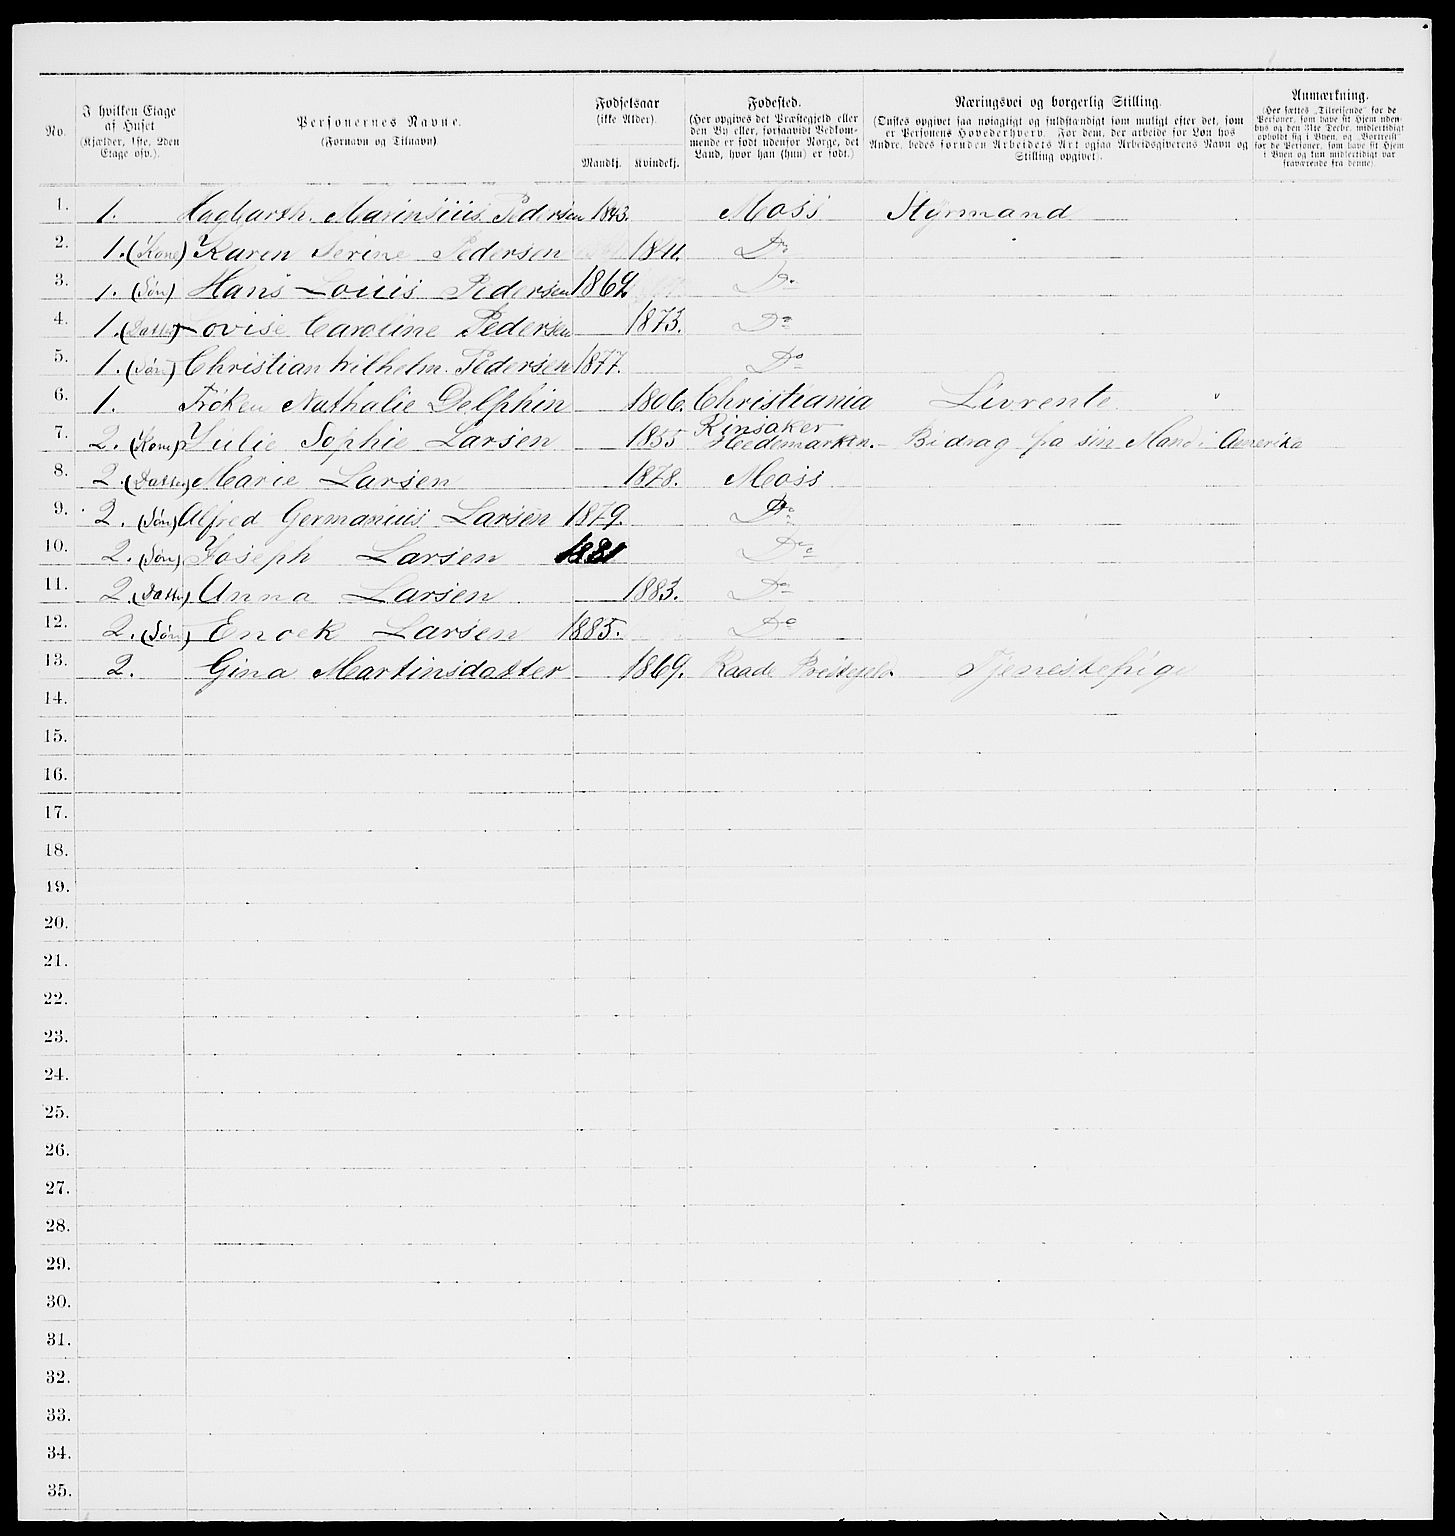 No.
I hvilken Etage
af Huset
(Kjælder, 1ste, 2den
Etage osv.).
Personernes Navne.
(Fornavn og Tilnavn)
Fødselsaar
(ikke Alder).
Mandkj. Kvindekj.
Fødested.
(Her opgives det Præstegjeld eller
den By eller, forsaavidt Vedkom-
mende er født udenfor Norge, det
Land, hvor han (hun) er født.)
Næringsvei og borgerlig Stilling.
(Ønskes opgivet saa nøiagtigt og fuldstændigt som muligt efter det, som
er Personens Hovederhverv. For dem, der arbeide for Løn hos
Andre, bedes foruden Arbeidets Art ogsaa Arbeidsgiverens Navn og
Stilling opgivet).
Anmærkning.
(Her sættes „Tilreisende“ for de
Personer, som have sit Hjem uden-
bys og den 31te Decbr. midlertidigt
opholdt sig i Byen, og „Bortreist“
for de Personer, som have sit Hjem
i Byen og kun midlertidigt var
fraværende fra denne).
1. 1. Hagbarth. Marinsius Pedersen 1843. Moss Styrmand
2. 1. (Kone) Karen Serine Pedersen 1841. Do
3. 1. (Søn) Hans Louis Pedersen 1869. Do
4. 1. (Datter) Lovise Caroline Pedersen 1873. Do
5. 1. (Søn) Christian Wilhelm. Pedersen 1877. Do
6. 1. Frøken Nathalie Delphin 1806. Christiania Livrente "
7. 2. (Kone) Julie Sophie Larsen 1855 Rinsaker Hedemarken. - Bidrag fra sin Mand i Amerika
8. 2. (Datter) Marie Larsen 1878. Moss
9. 2. (Søn) Alfred Germanius Larsen 1879. Do
10. 2. (Søn) Joseph Larsen 1881 Do
11. 2. (Datter) Anna Larsen 1883. Do
12. 2. (Søn) Enock Larsen 1885. Do
13. 2. Gina Martinsdatter 1869. Raade Tjenestepige
14.
15.
16.
17.
18.
19.
20.
21.
22.
23.
24.
25.
26.
27.
28.
29.
30.
31.
32.
33.
34.
35.